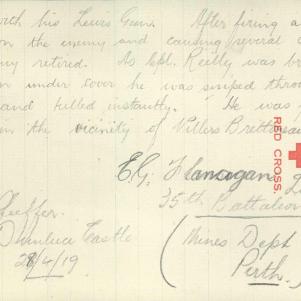 with his Lewis Gun. After firing a
on the enemy and causing several
ny retired. As Cpl. Reilly was br
n under cover he was sniped throu
and killed instantly. He was
in the vicinity of Villers Brettoneau
RED CROSS.
E.G. Flanagan
35th Battalion
Pfeiffer.
Dunluce Castle
28/4/19
(Mines Dept
Perth.)